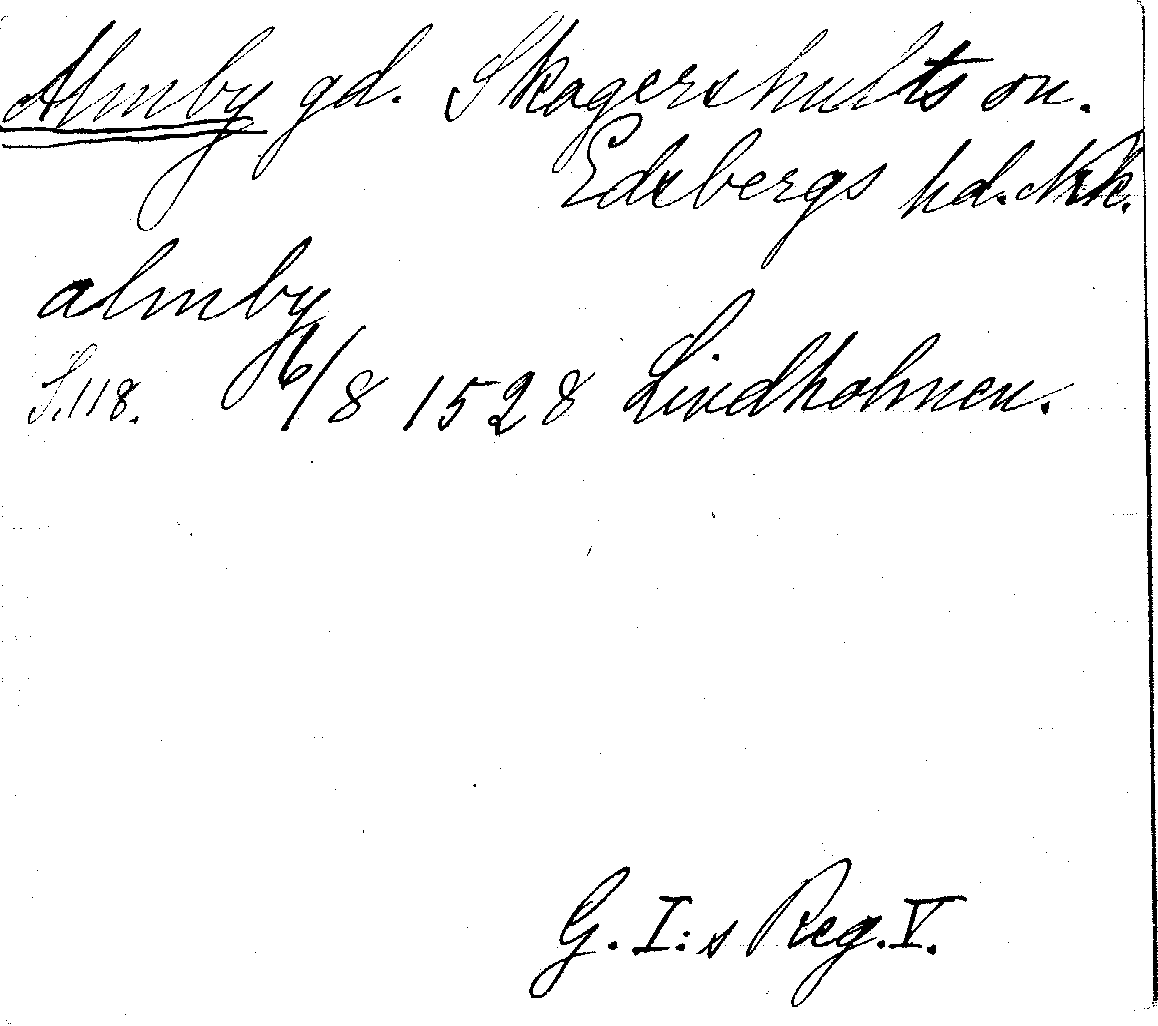 Almby gd. Skagershults sn.
Edsbergs hd. Nrk.
almby
S. 118. 6/8 1528 Lindholmen.
G. I:s Reg. V.